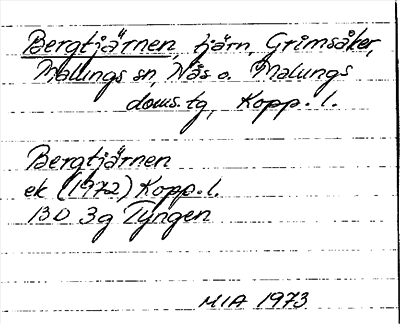 Bergtjärnen, tjärn, Grimsåker,
Malungs sn, Nås o. Malungs
doms.tg, Kopp. l.
Bergtjärnen
ek (1972) Kopp. l.
13D 3g Tyngen
MIA 1973